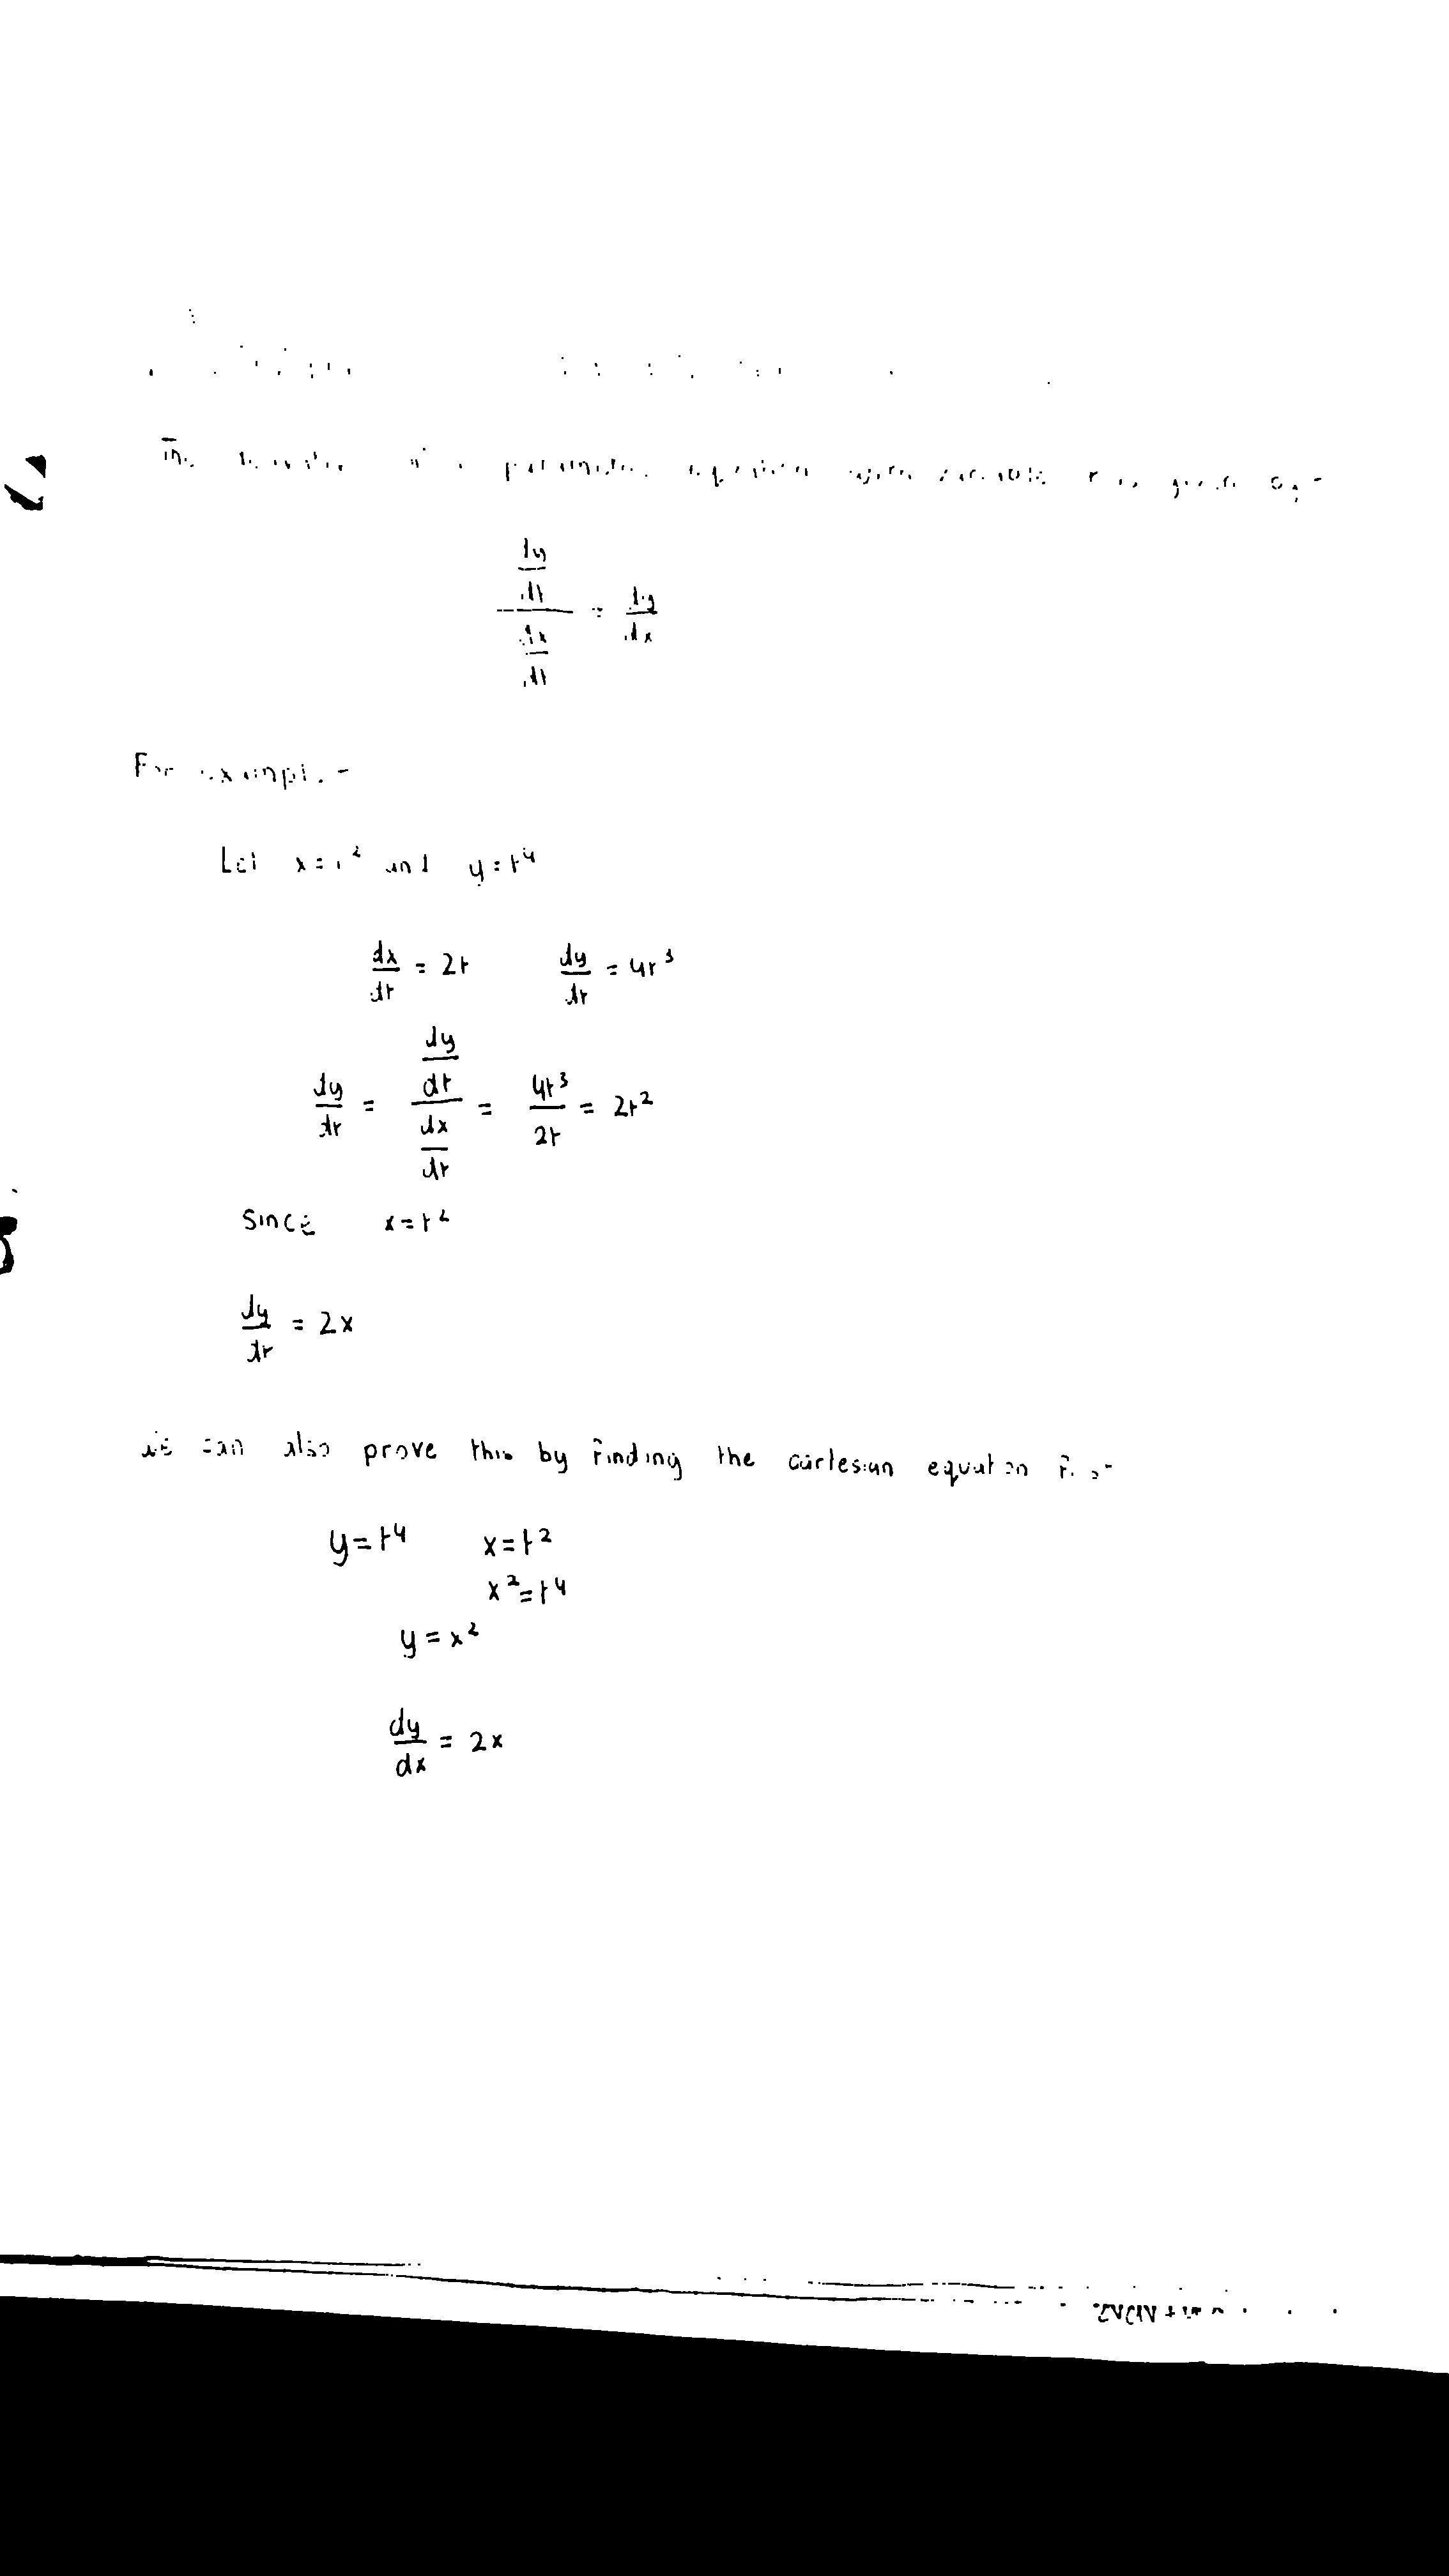 The derivative of a parametric equation with variable t is given by -
dy/dt / dx/dt = dy/dx
For example -
Let x = t² and y = t⁴
dx/dt = 2t dy/dt = 4t³
dy/dt = dy/dt / dx/dt = 4t³/2t = 2t²
Since x = t²
dy/dt = 2x
we can also prove this by finding the cartesian equation
y = t⁴ x = t²
x² = t⁴
y = x²
dy/dx = 2x